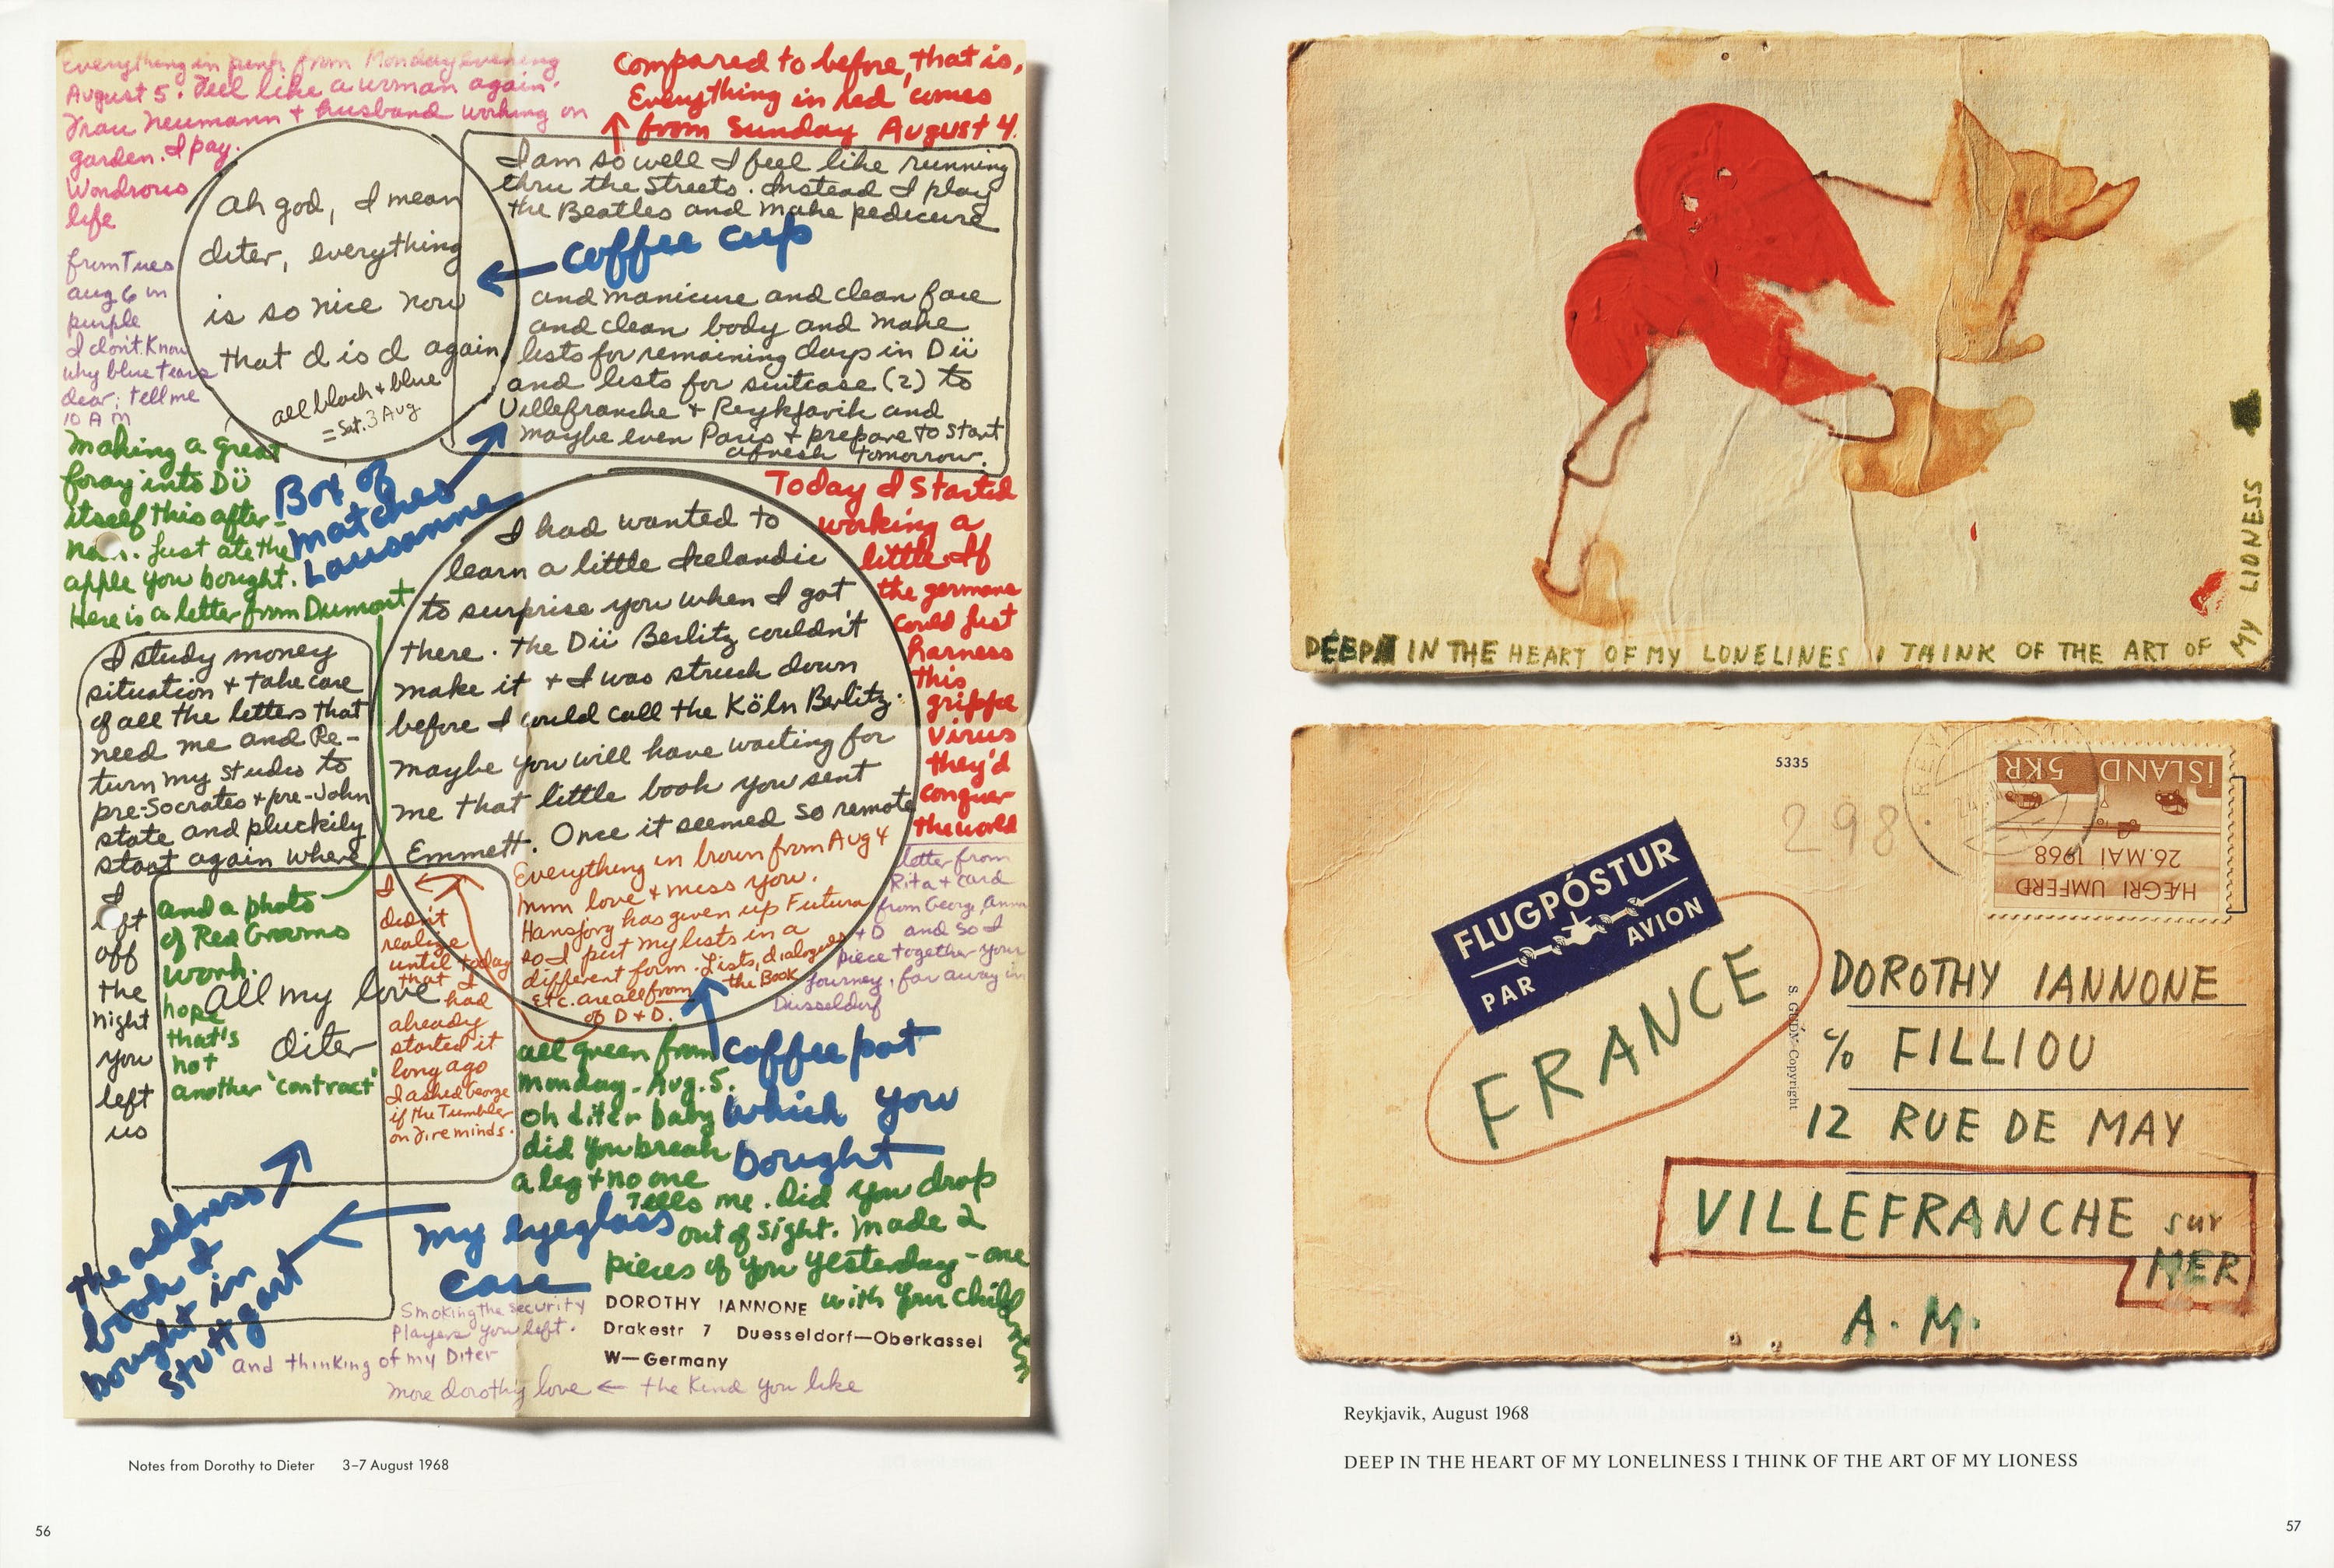 Everything in pink from Monday evening
August 5. Feel like a woman again.
Frau Neumann + husband working on
garden. I pay.
Wondrous
life
Compared to before, that is.
Everything in red comes
from Sunday August 4.
Ah god, I mean
diter, everything
is so nice now
that d is d again
all black + blue
= Sat. 3 Aug
I am so well I feel like running
thru the streets. Instead I play
the Beatles and make pedicure
coffee cup
and manicure and clean face
and clean body and make
lists for remaining days in Dü
and lists for suitcase (2) to
Villefranche + Reykjavik and
maybe even Paris + prepare to start
afresh tomorrow.
from Tues
aug 6 in
purple
I don't know
why blue tears
dear; tell me
10 AM
Making a great
foray into Dü
itself this after-
noon. Just ate the
apple you bought.
Here is a letter from Dumont
Box of
matches
Lausanne
Today I started
working a
little. If
the germans
could just
harness
this
grippe
virus
they'd
conquer
the world
I had wanted to
learn a little Icelandic
to surprise you when I got
there. The Dü Berlitz couldn't
make it + I was struck down
before I could call the Köln Berlitz.
Maybe you will have waiting for
me that little book you sent
Emmett. Once it seemed so remote
I study money
situation + take care
of all the letters that
need me and Re-
turn my studio to
pre-Socrates + pre-John
state and pluckily
start again where
I
left
off
the
night
you
left
us
and a photo
of Red Grooms
work.
hope
that's
not
another 'contract'
All my love
diter
I
didn't
realize
until today
that I
had
already
started it
long ago
I asked George
if the Tumbler
on Fire minds.
Everything in brown from Aug 4
Mmm love + miss you.
Hansjörg has given up Futura
so I put my lists in a
different form. Lists, dialogues
etc. are all from the Book
of D + D.
letter from
Rita + card
from George, Anna
+ D and so I
piece together your
journey, far away in
Dusseldorf
all green from
Monday - Aug. 5.
oh diter baby
did you break
a leg + no one
tells me. Did you drop
out of sight. Made 2
pieces of you yesterday - one
with your children
coffee pot
which you
bought
The address
book I
bought in
Stuttgart
My eyeglass
case
Smoking the security
Players you left.
And thinking of my Diter
more dorothy love ← the kind you like
DOROTHY IANNONE
Drakestr 7 Duesseldorf—Oberkassel
W—Germany
Notes from Dorothy to Dieter 3–7 August 1968
56
DEEP IN THE HEART OF MY LONELINES I THINK OF THE ART OF
MY LIONESS
5335
298
ÍSLAND 5KR
26. MAÍ 1968
HÆGRI UMFERÐ
FLUGPÓSTUR
PAR AVION
FRANCE
S. GUÐM. Copyright
DOROTHY IANNONE
% FILLIOU
12 RUE DE MAY
VILLEFRANCHE sur
MER
A. M.
Reykjavik, August 1968
DEEP IN THE HEART OF MY LONELINESS I THINK OF THE ART OF MY LIONESS
57